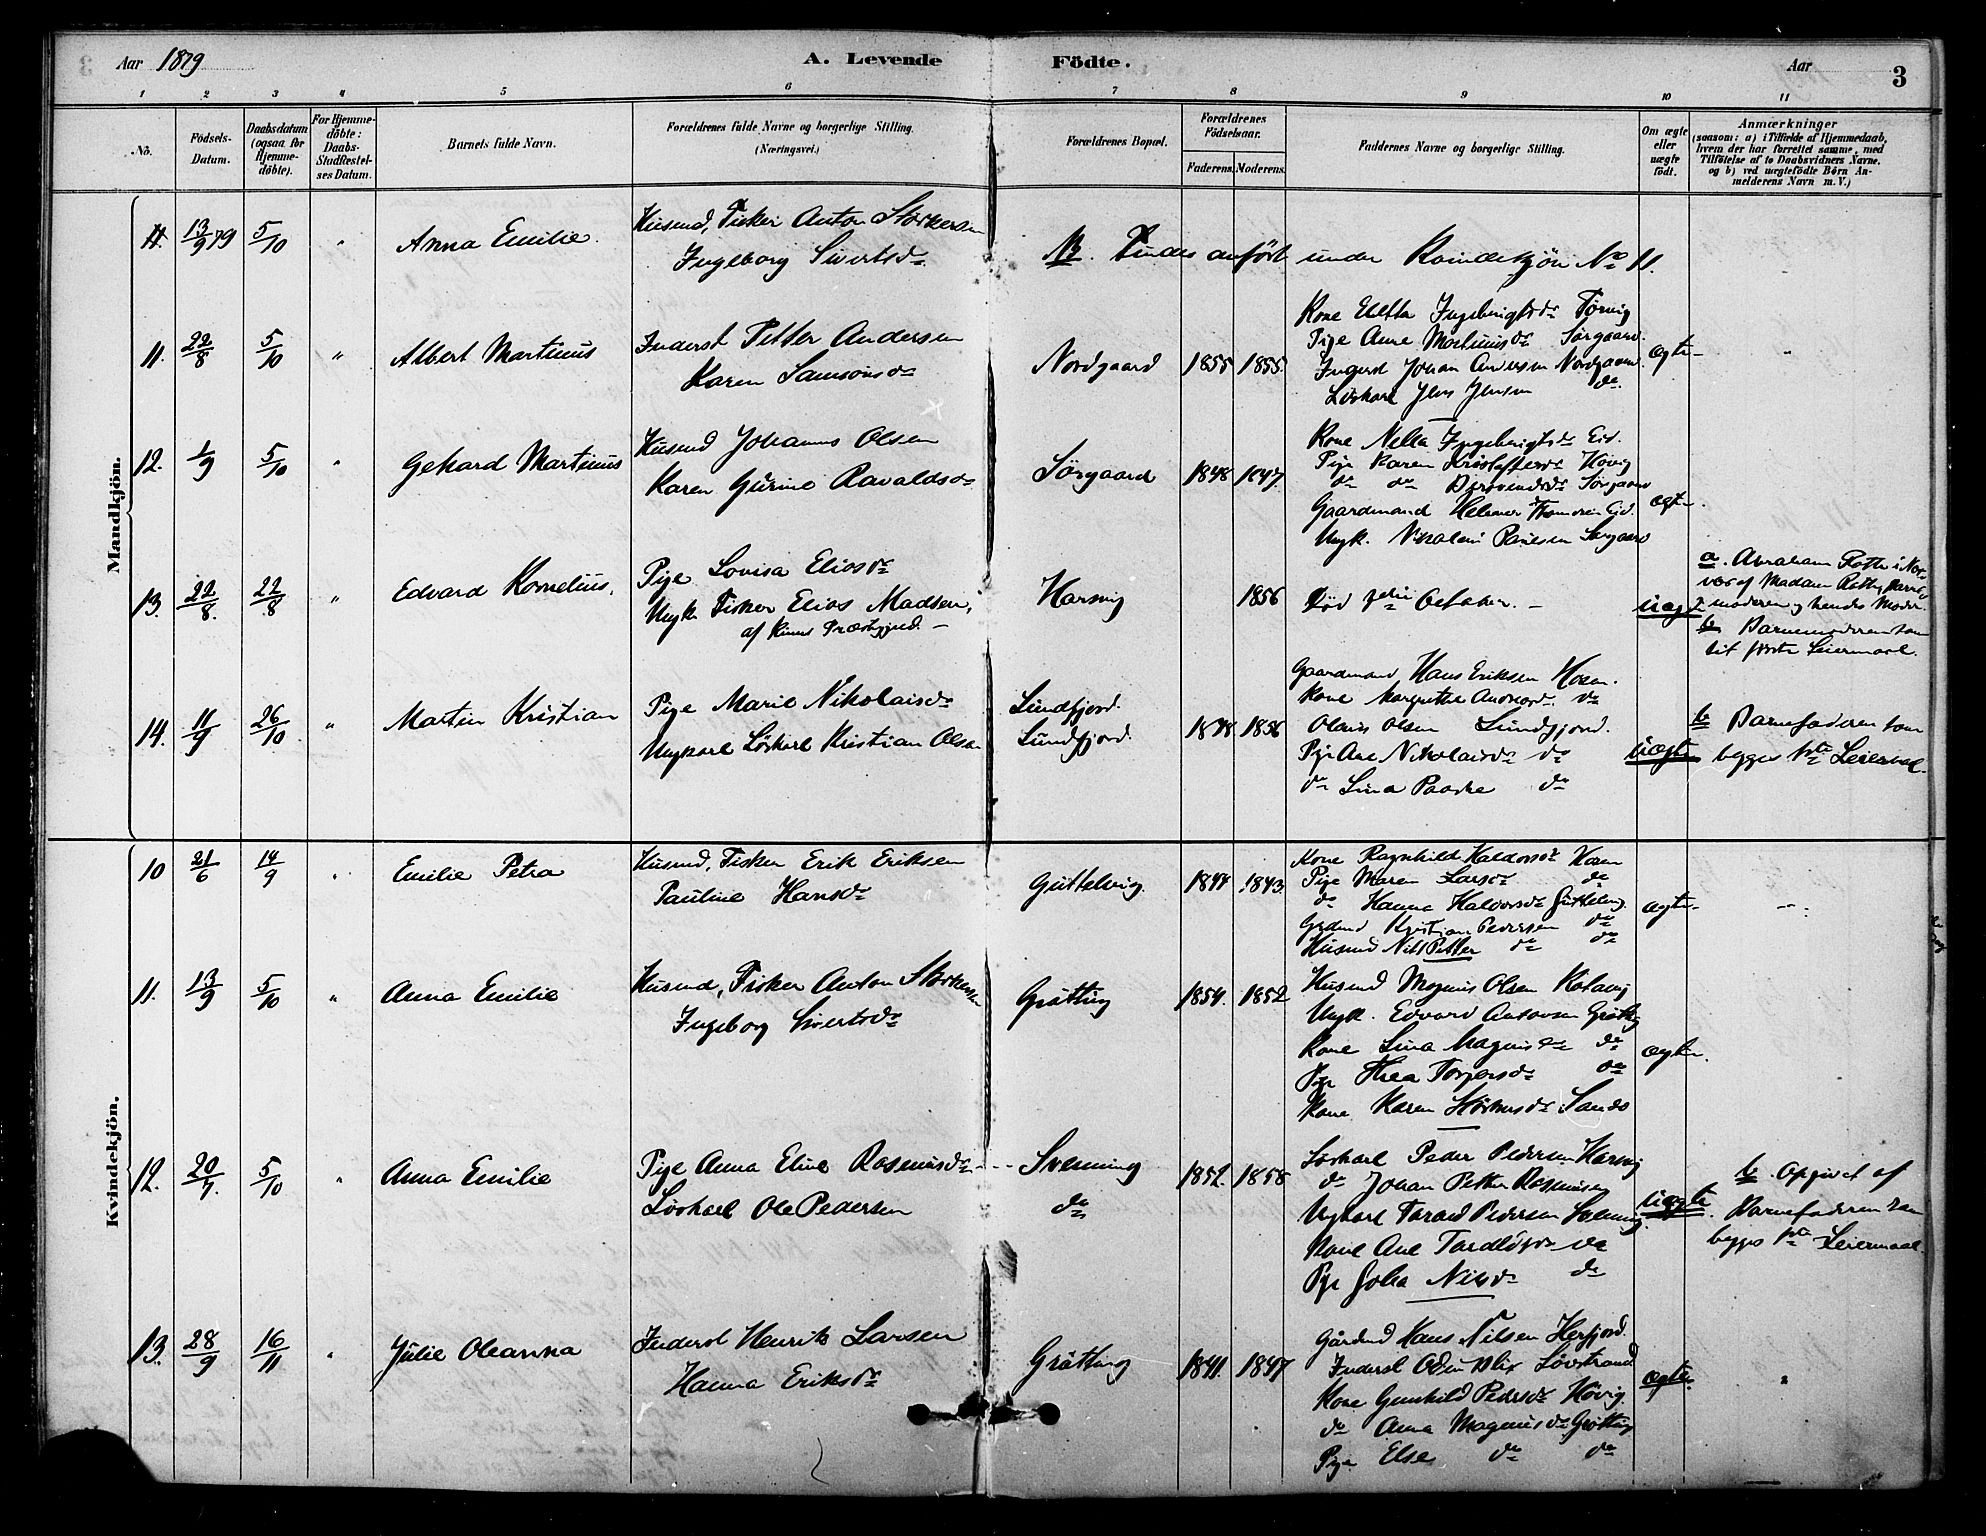 Aar 1879
A. Levende Födte.
Aar 3
1 2 3 4 5 6 7 8 9 10 11
No.
Födsels-Datum.
Daabsdatum (ogsaa for Hjemme-döbte).
For Hjemme-döbte: Daabs-Stadfæstel-ses Datum.
Barnets fulde Navn.
Forældrenes fulde Navne og borgerlige Stilling.
(Næringsvei.)
Forældrenes Bopæl.
Forældrenes Födselsaar.
Faderens. Moderens.
Faddernes Navne og borgerlige Stilling.
Om ægte eller uægte födt.
Anmærkninger
(saasom: a) i Tilfælde af Hjemmedaab,
hvem der har forrettet samme, med
Tilföielse af to Daabsvidners Navne,
og b) ved uægtefödte Börn An-
melderens Navn m. V.)
Mandkjön.
11. 13/9 79 5/10 " Anna Emilie.
Husmd, Fisker Anton Størkersen
Ingeborg Sivertsdr
NB. Findes anført under Kvindekjøn No 11.
11. 22/8 5/10 " Albert Martinus
Inderst Petter Andersen
Karen Samsonsdr
Nordgaard 1855 1855.
Kone Ingebrigtsdr
Pige Ane Martinusdr Sørgaard.
Inderst Johan Andersen Nordgaard
Løskarl Jens Jensen do.
ægte
12. 1/9 5/10 " Gerhard Martinus
Husmd Johannes Olsen
Karen Gurine
Sørgaard 1848 1847.
Kone Ingebrigtsdr Eid.
Pige Karen Kristoffersdr Høvig
do do Sørgaard
Gaardmand Eid.
Ungk. Nikolai Paulsen Sørgaard
ægte.
13. 22/8. 22/8 " Edvard Kornelius.
Pige Lovisa Eliasdr
Ungk. Fisker Elias Madsen,
af Præstegjeld.
Harsvig 1856
Død October.
uægte
a. Abraham Rotte i
af Madam Rotte,
moderen og hendes Moder.
b. Barnemoderen som
sit første Leiermaal.
14. 11/9 26/10 " Martin Kristian
Pige Marie Nikolaisdr
Ungkarl Løskarl Kristian Olsen
Sundfjord.
Sundfjord. 1848 1856
Gaardmand Hans Eriksen Hosen.
Kone Margrethe do
Olaus Olsen Sundfjord.
Pige Ane Nikolaisdr do
do Lina Paaske do
uægte
b Barnefaderen som
begges 1ste Leiermaal.
Kvindekjön.
10 21/6 14/9 " Emilie Petra
Husmd, Fisker Erik Eriksen
Pauline Hansdr
Guttelvig. 1844 1843.
Kone Ragnhild Haldorsdr Hosen
Pige Maren Larsdr do
do Hanna Halvorsdr Guttelvig
Kristian Pedersen do
Husmd Nils Petter do do
ægte
11. 13/9 5/10 " Anna Emilie
Husmd, Fisker Anton Størkersen
Ingeborg Sivertsdr
Grøtting 1854. 1852
Husmd Magnus Olsen
Ungk. Edvard Antonsen Grøtting
Kone Lina Magnusdr do
Pige Thea Torgersdr do
Kone Karen Størkersdr Sando
ægte.
12. 20/7. 5/10 " Anna Emilie
Pige Anna Eline Rasmusdr
Løskarl Ole Pedersen
Svenning
do
1852. 1858
Løskarl Peder Pedersen Harsvig
do Johan Petter Rasmusen
Ungkarl Pedersen Svenning.
Kone Ane do
Pige Nilsdr do
uægte
b. Opgivet af
Barnefaderen som
begges 1ste Leiermaal.
13. 28/9 16/11 " Julie Oleanna
Inderst Henrik Larsen
Hanna Eriksdr
Grøtting 1841. 1847
Gårdmd Hans Nilsen Herfjord.
Inderst Løvstrand
Kone Gunhild Pedersdr Høvig.
do Anna Magnusdr Grøtting
Pige Else do do
ægte.